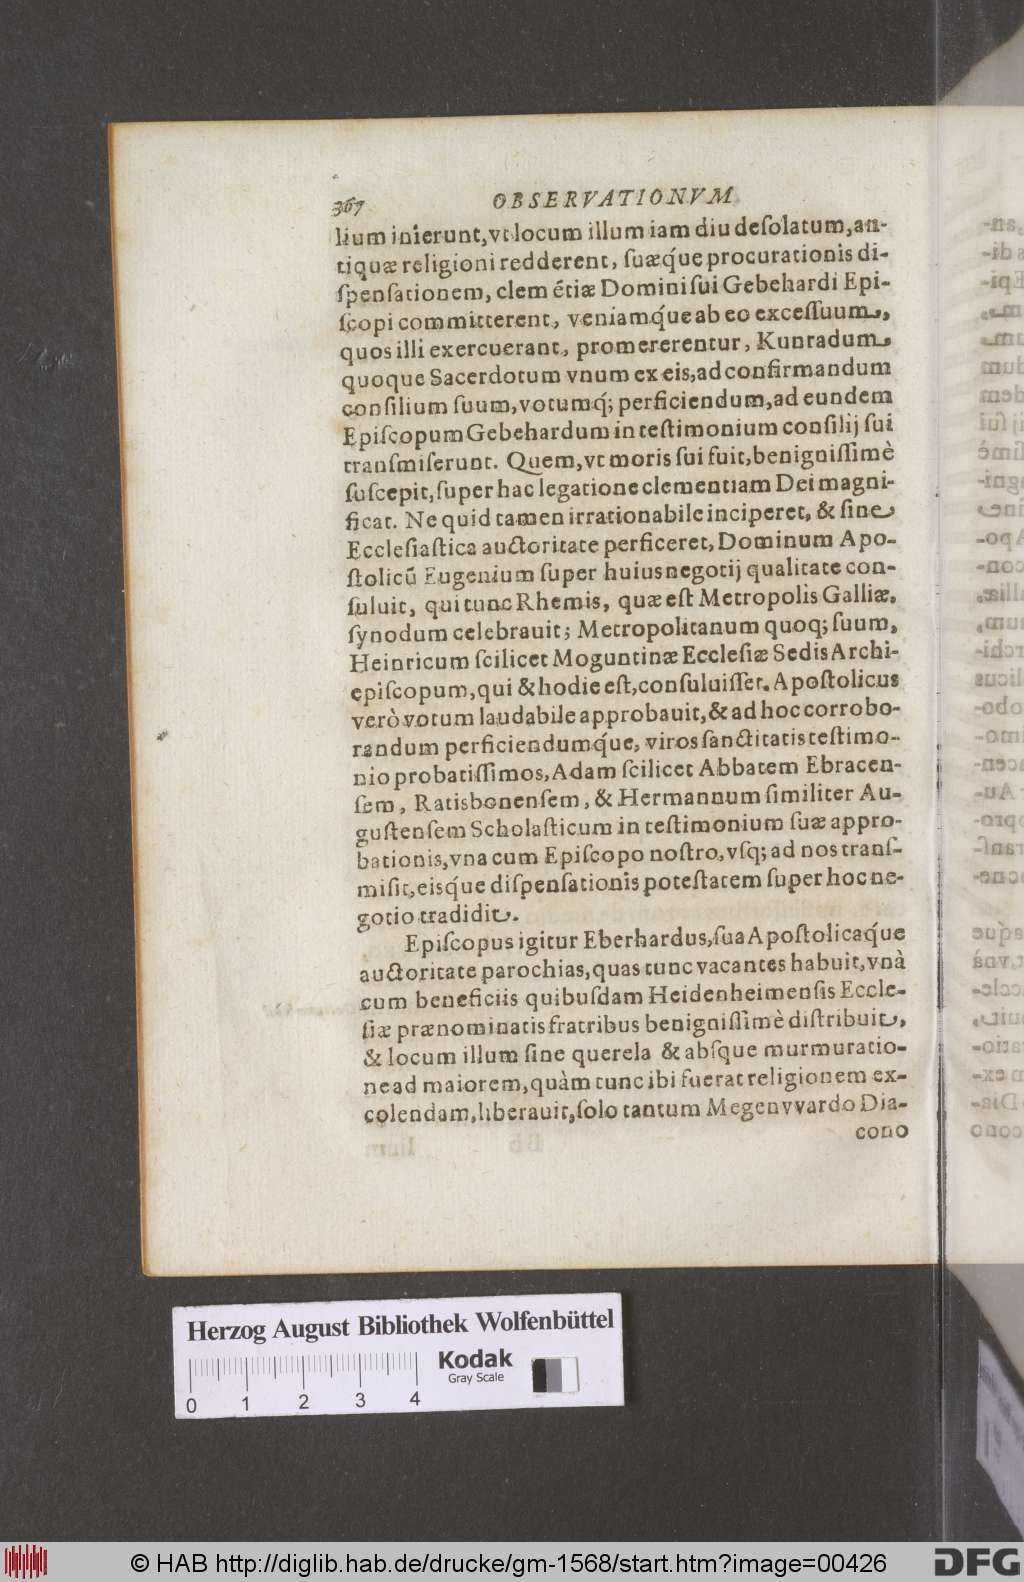 367 OBSERVATIONVM
lium inierunt, vt locum illum iam diu desolatum, an-
tiquæ religioni redderent, suæq́ue procurationis di-
spensationem, clemẽtiæ Domini sui Gebehardi Epi-
scopi committerent, veniamq́ue ab eo excessuum,
quos illi exercuerant, promererentur, Kunradum
quoque Sacerdotum vnum ex eis, ad confirmandum
consilium suum, votumq́; perficiendum, ad eundem
Episcopum Gebehardum in testimonium consilij sui
transmiserunt. Quem, vt moris sui fuit, benignissimè
suscepit, super hac legatione clementiam Dei magni-
ficat. Ne quid tamen irrationabile inciperet, & sine
Ecclesiastica auctoritate perficeret, Dominum Apo-
stolicū Eugenium super huius negotij qualitate con-
suluit, qui tunc Rhemis, quæ est Metropolis Galliæ,
synodum celebrauit; Metropolitanum quoq; suum,
Heinricum scilicet Moguntinæ Ecclesiæ Sedis Archi-
episcopum, qui & hodie est, consuluisset. Apostolicus
verò votum laudabile approbauit, & ad hoc corrobo-
randum perficiendumq́ue, viros sanctitatis testimo-
nio probatissimos, Adam scilicet Abbatem Ebracen-
sem, Ratisbonensem, & Hermannum similiter Au-
gustensem Scholasticum in testimonium suæ appro-
bationis, vna cum Episcopo nostro, vsq; ad nos trans-
misit, eisq́ue dispensationis potestatem super hoc ne-
gotio tradidit.
Episcopus igitur Eberhardus, sua Apostolicaq́ue
auctoritate parochias, quas tunc vacantes habuit, vnà
cum beneficiis quibusdam Heidenheimensis Eccle-
siæ prænominatis fratribus benignissimè distribuit,
& locum illum sine querela & absque murmuratio-
ne ad maiorem, quàm tunc ibi fuerat religionem ex-
colendam, liberauit, solo tantum Megenvvardo Dia-
cono
Herzog August Bibliothek Wolfenbüttel
Kodak
Gray Scale
0 1 2 3 4
© HAB http://diglib.hab.de/drucke/gm-1568/start.htm?image=00426
DFG